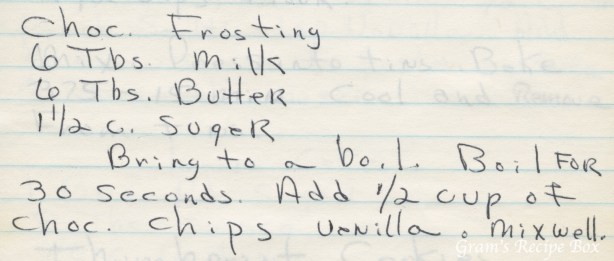 Choc. Frosting
6 Tbs. Milk
6 Tbs. Butter
1 1/2 c. Suger
Bring to a boil. Boil FOR
30 seconds. Add 1/2 cup of
Choc. Chips vanilla. mix well.
Gram's Recipe Box